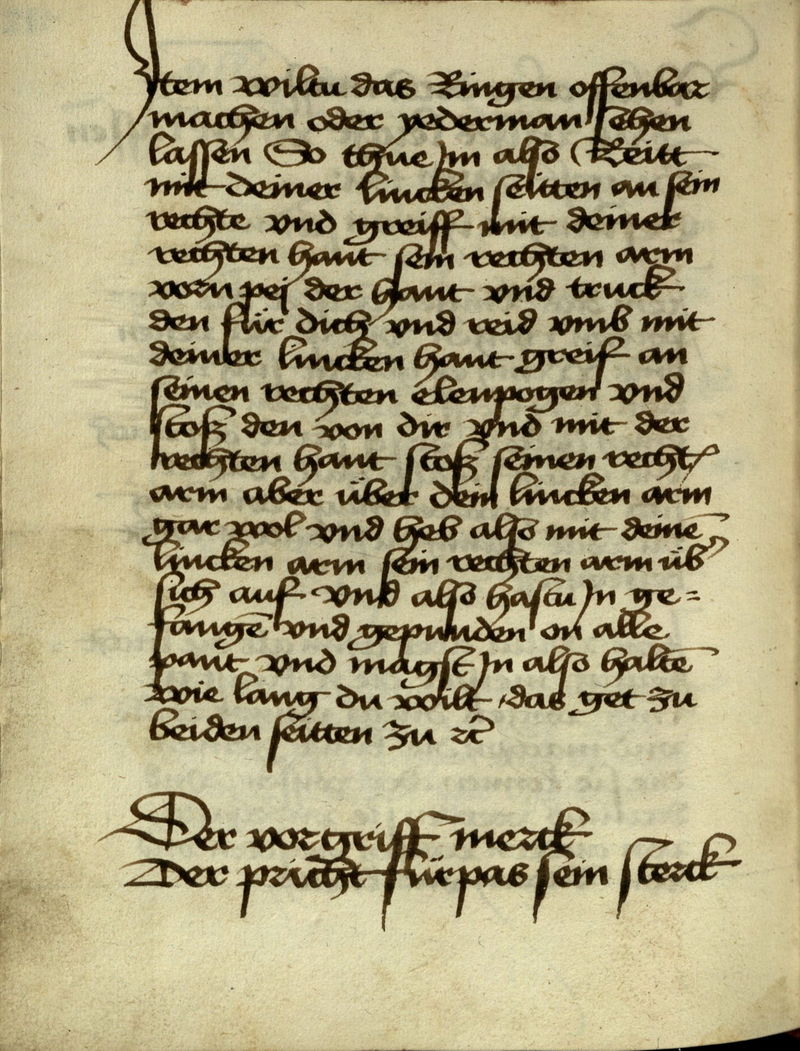 Item wiltu das Ringen offenbar
machen oder yederman sehen
lassen So thue Jm also Reitt
mit deiner lincken seitten an sein
rechte vnd greiff mit deiner
rechten hant sein rechten arm
vorn pej der hant vnd truck
den für dich vnd reid vmb mit
deiner lincken hant greif an
seinen rechten elenpogen vnd
stoß den von dir vnd mit der
rechten hant stoß seinen recht̃
arm aber über dein lincken arm
gar wol vnd heb also mit deinē
lincken arm sein rechten arm üb̾
sich auf vnd also hastu Jn ge=
fangē vnd gepunden on alle
pant vnd magst Jn also haltē
wie lang du wilt das get zu
beiden seitten zu ꝛc̃
Der vorgriff merck
Der pricht fürpas sein sterck